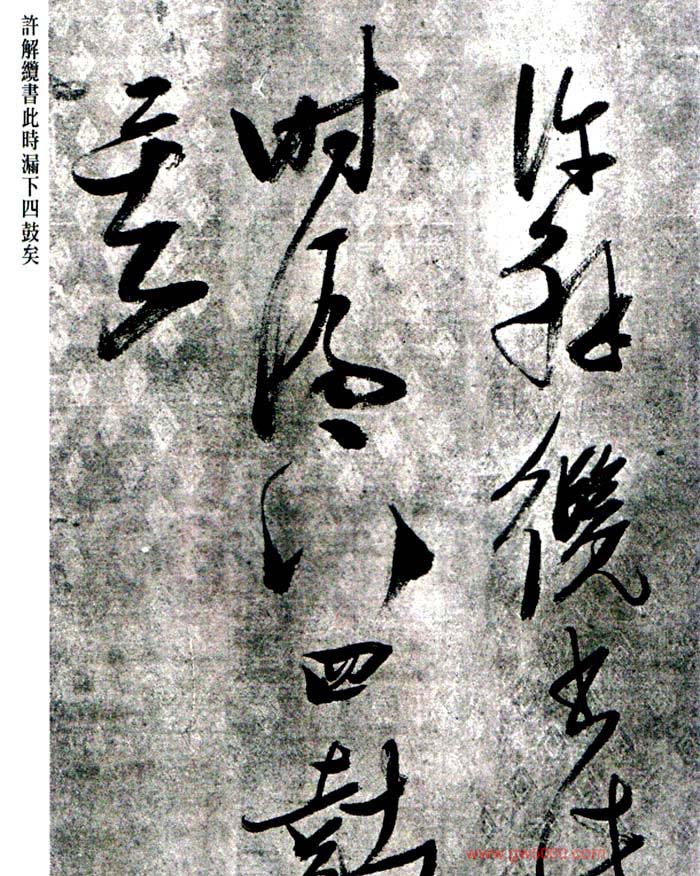 許解纜書此
時漏下四鼓
矣
許解纜書此時漏下四鼓矣